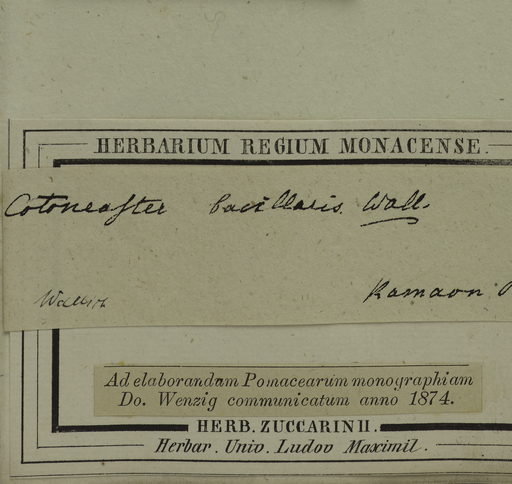 HERBARIUM REGIUM MONACENSE.
Cotoneaster bacillaris. Wall.
Wallich Kamaon
Ad elaborandum Pomacearum monographiam
Do. Wenzig communicatum anno 1874.
HERB. ZUCCARINII.
Herbar. Univ. Ludov Maximil.